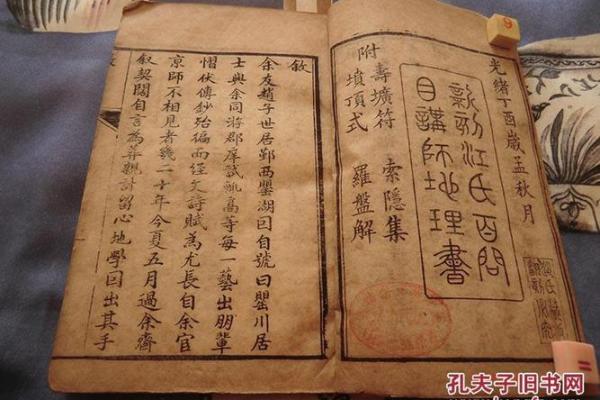 光緒丁酉歲孟秋月
新刻江氏百問
目講師地理書
附
壽壙符 索隱集
墳頂式 羅盤解
敘
余友趙子世居鄞西罌湖囙自號曰罌川居
士與余同游郡庠試輒高等每一藝出朋輩
慴伏傳鈔殆徧而經文詩賦為尤長自余官
京師不相見者幾二十年今夏五月過余齋
敘契闊自言為葬親計留心地學囙出其手
9
孔夫子旧书网